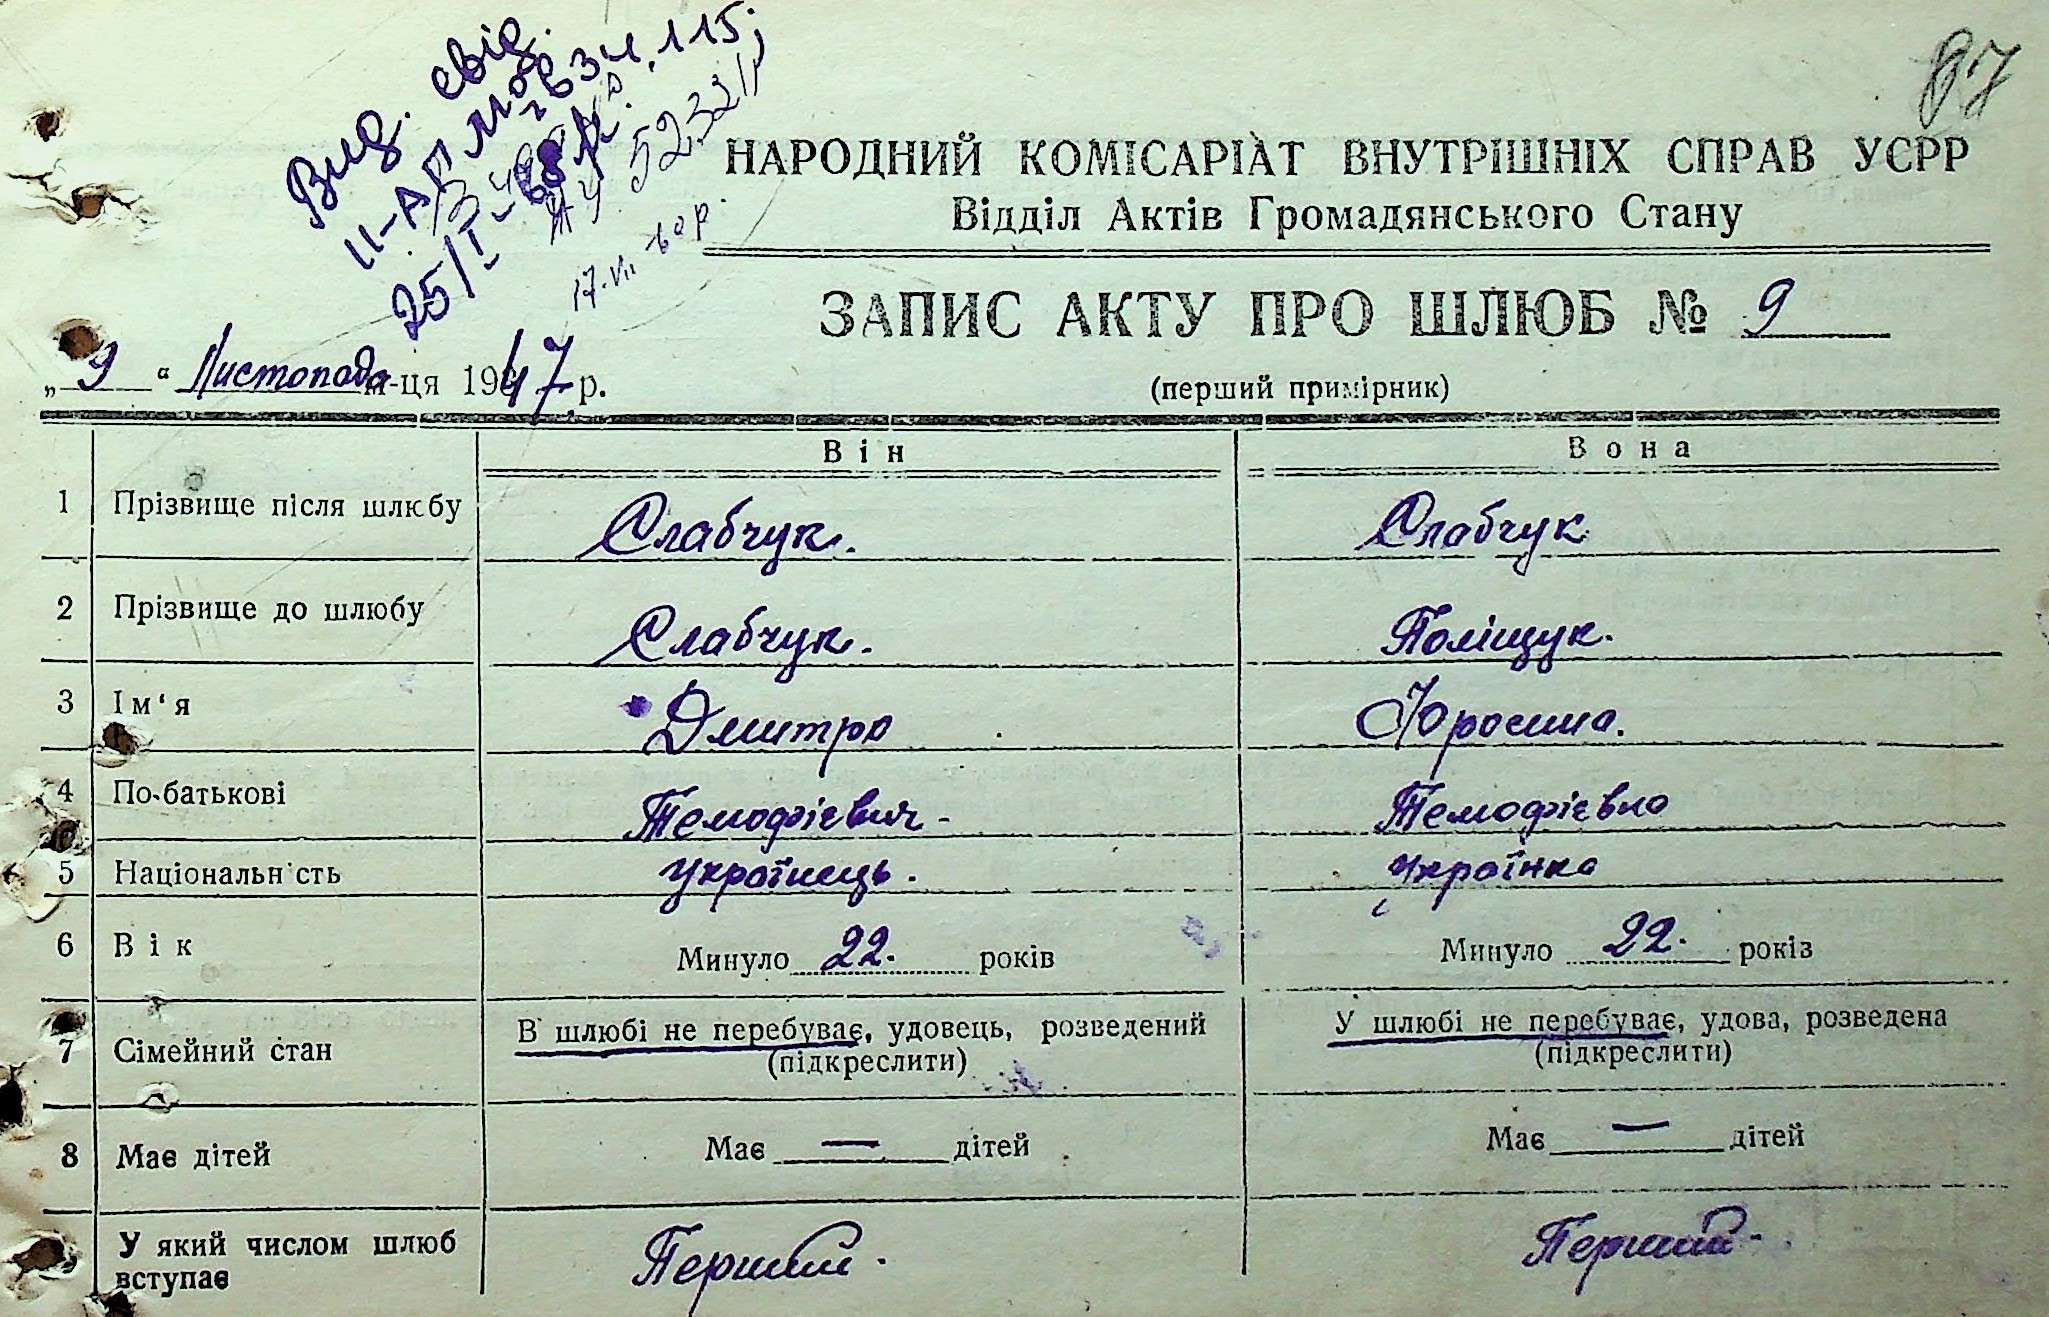 Вид. свід.
II-АП № 083411 115;
25/I-68 р.
ЖУ 52332
17.VII-60 р.
87
НАРОДНИЙ КОМІСАРІАТ ВНУТРІШНІХ СПРАВ УСРР
Відділ Актів Громадянського Стану
ЗАПИС АКТУ ПРО ШЛЮБ № 9
„9“ Листопада м-ця 1947 р.
(перший примірник)
Він Вона
1 Прізвище після шлюбу Слабчук. Слабчук
2 Прізвище до шлюбу Слабчук. Поліщук.
3 Ім‘я Дмитро Юросима.
4 По-батькові Темофієвич- Темофієвна
5 Національність Українець. Українка
6 Вік Минуло 22. років Минуло 22. років
7 Сімейний стан В шлюбі не перебуває, удовець, розведений У шлюбі не перебуває, удова, розведена
(підкреслити) (підкреслити)
8 Має дітей Має — дітей Має — дітей
У який числом шлюб вступає Перший. Перший.